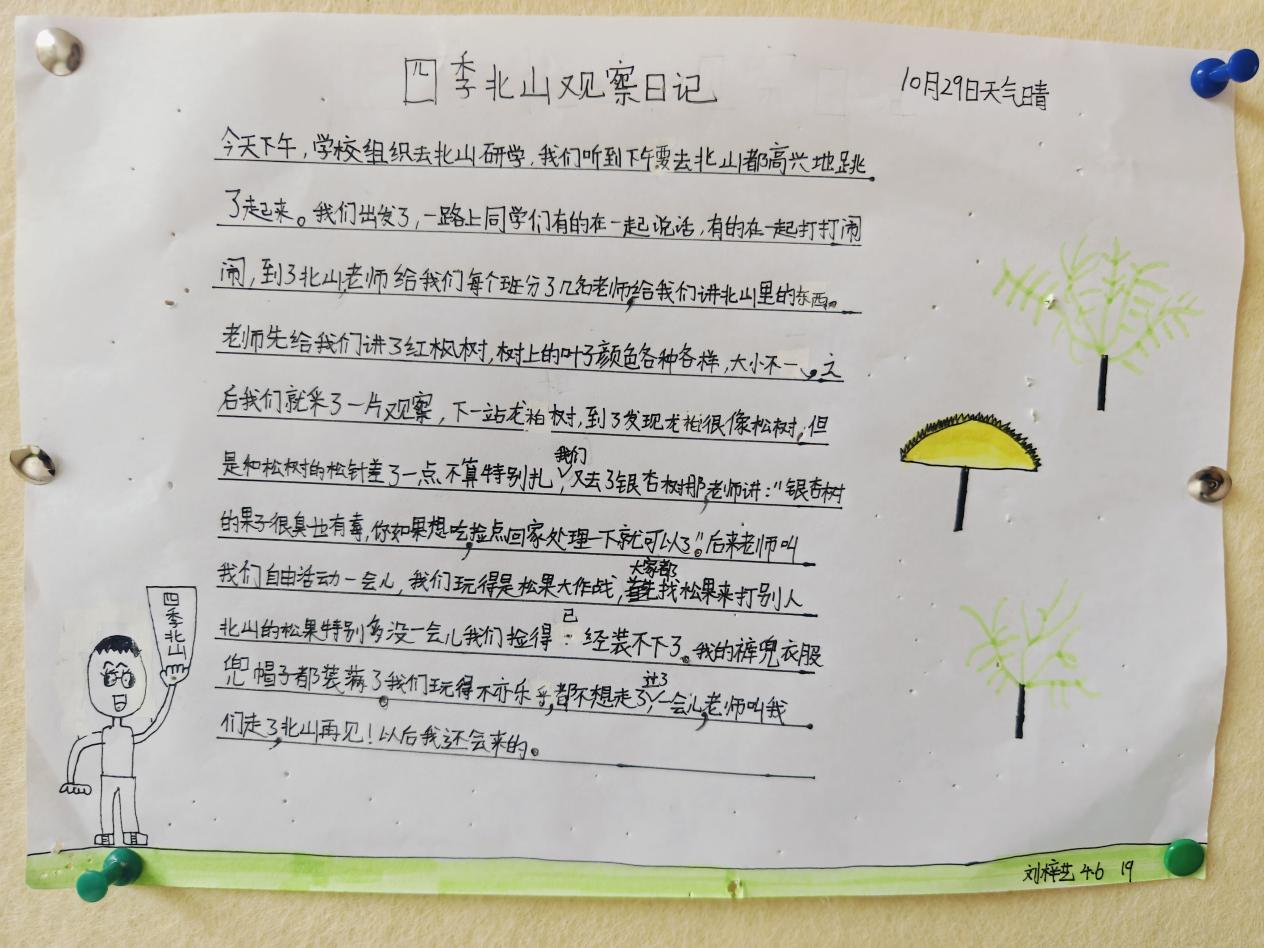 四季北山观察日记
10月29日天气晴
今天下午，学校组织去北山研学，我们听到下午要去北山都高兴地跳
了走起来。我们出发了，一路上同学们有的在一起说话，有的在一起打打闹
闹，到了北山，老师给我们每个班分了几名老师，给我们讲北山里的东西。
老师先给我们讲了红枫树，树上的叶子颜色各种各样，大小不一，之
后我们就采了一片观察，下一站龙柏树，到了发现龙柏很像松树，但
是和松树的松针差了一点不算特别扎，我们又去了银杏树那，老师讲：“银杏树
的果子很臭也有毒，你如果想吃，捡点回家处理一下就可以了。”后来老师叫
我们自由活动一会儿，我们玩得是松果大作战，大家都找松果来打别人
北山的松果特别多没一会儿我们捡得已经装不下了。我的裤兜衣服
兜帽子都装满了。我们玩得不亦乐乎，都不想走了，过了一会儿，老师叫我
们走了，北山再见！以后我还会来的。
四季北山
刘梓艺 4.6 19